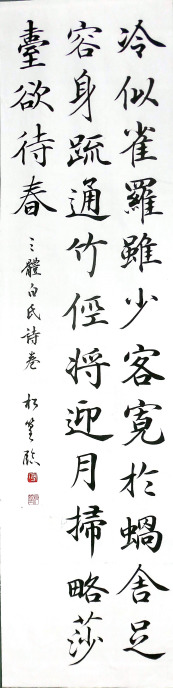 冷似雀羅雖少客寛於蝸舎足
容身疏通竹徑将迎月掃略莎
臺欲待春
三體白氏詩巻 松篁臨